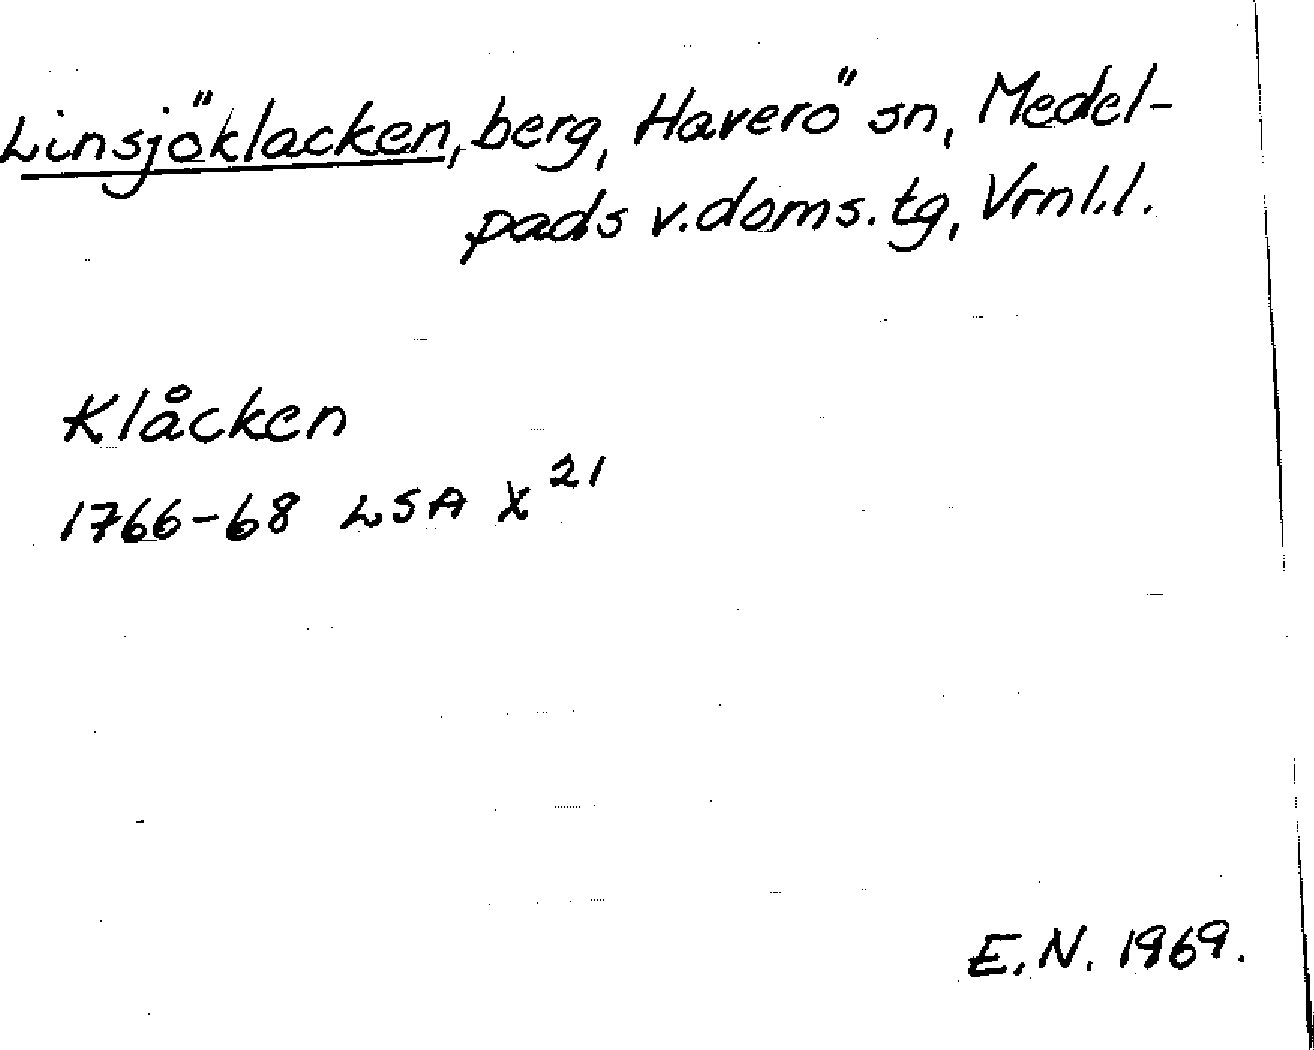 Linsjöklacken, berg, Haverö sn, Medel-
pads v.doms.tg, Vrnl.l.
Klåcken
1766-68 LSA X²¹
E.N. 1969.